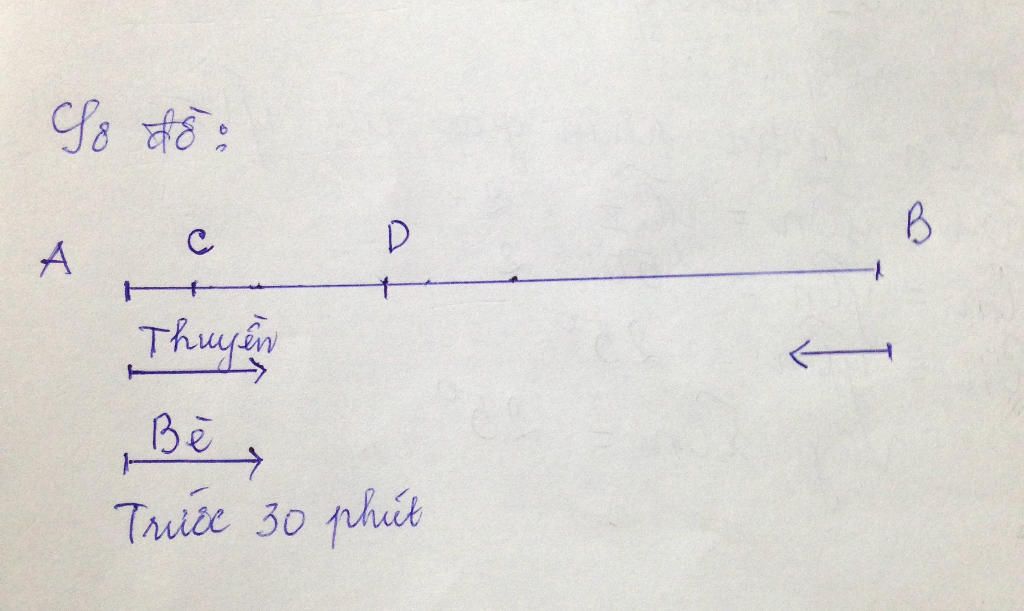 Sơ đồ:
A C D B
Thuyền
Bè
Trước 30 phút